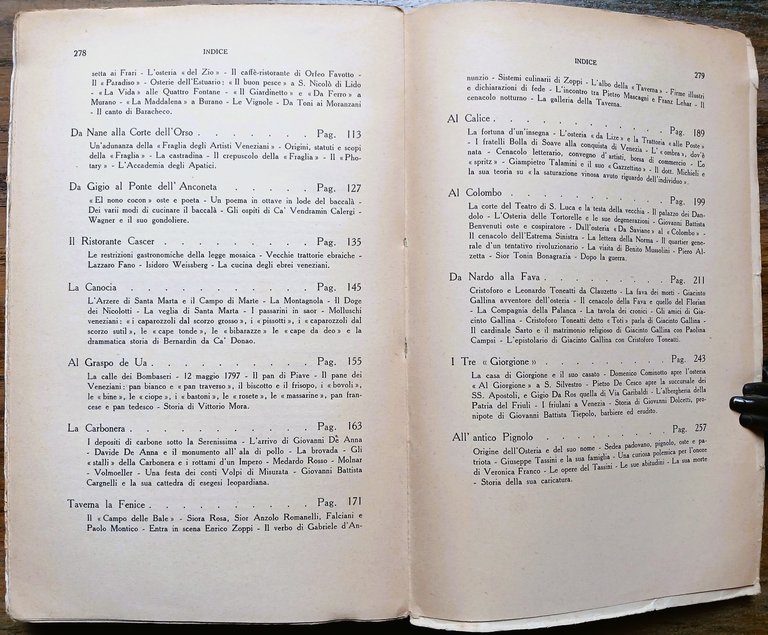 278 INDICE
setta ai Frari - L'osteria « del Zio » - Il caffè-ristorante di Orfeo Favotto -
Il « Paradiso » - Osterie dell'Estuario : « Il buon pesce » a S. Nicolò di Lido
- « La Vida » alle Quattro Fontane - « Il Giardinetto » e « Da Ferro » a
Murano - « La Maddalena » a Burano - Le Vignole - Da Toni ai Moranzani
- Il canto di Baracheco.
Da Nane alla Corte dell'Orso . . . . . . . . Pag. 113
Un'adunanza della « Fraglia degli Artisti Veneziani » - Origini, statuti e scopi
della « Fraglia » - La castradina - Il crepuscolo della « Fraglia » - Il « Pho-
tary » - L'Accademia degli Apatici.
Da Gigio al Ponte dell'Anconeta . . . . . Pag. 127
« El nono cocon » oste e poeta - Un poema in ottave in lode del baccalà -
Dei varii modi di cucinare il baccalà - Gli ospiti di Ca' Vendramin Calergi -
Wagner e il suo gondoliere.
Il Ristorante Cascer . . . . . . . . . Pag. 135
Le restrizioni gastronomiche della legge mosaica - Vecchie trattorie ebraiche -
Lazzaro Fano - Isidoro Weissberg - La cucina degli ebrei veneziani.
La Canocia . . . . . . . . . . . Pag. 145
L'Arzere di Santa Marta e il Campo di Marte - La Montagnola - Il Doge
dei Nicolotti - La veglia di Santa Marta - I passarini in saor - Molluschi
veneziani : « i caparozzoli dal scorzo grosso », i « pissotti », i « caparozzoli dal
scorzo sutil », le « cape tonde », le « bibarazze » le « cape da deo » e la
drammatica storia di Bernardin da Ca' Donao.
Al Graspo de Ua . . . . . . . . . . Pag. 155
La calle dei Bombaseri - 12 maggio 1797 - Il pan di Piave - Il pane dei
Veneziani : pan bianco e « pan traverso », il biscotto e il frisopo, i « bovoli »,
le « bine », le « ciope », i « bastoni », le « rosete », le « massarine », pan fran-
cese e pan tedesco - Storia di Vittorio Mora.
La Carbonera . . . . . . . . . . . Pag. 163
I depositi di carbone sotto la Serenissima - L'arrivo di Giovanni De Anna
- Davide De Anna e il monumento all'ala di pollo - La brovada - Gli
« stalli » della Carbonera e i rottami d'un Impero - Medardo Rosso - Molnar
- Volmoeller - Una festa dei conti Volpi di Misurata - Giovanni Battista
Cargnelli e la sua cattedra di esegesi leopardiana.
Taverna la Fenice . . . . . . . . . . Pag. 171
Il « Campo delle Bale » - Siora Rosa, Sior Anzolo Romanelli, Falciani e
Paolo Montico - Entra in scena Enrico Zoppi - Il verbo di Gabriele d'An-
INDICE 279
nunzio - Sistemi culinarii di Zoppi - L'albo della « Taverna » - Firme illustri
e dichiarazioni di fede - L'incontro tra Pietro Mascagni e Franz Lehar - Il
cenacolo notturno - La galleria della Taverna.
Al Calice . . . . . . . . . . . . Pag. 189
La fortuna d'un'insegna - L'osteria « da Lize » e la Trattoria « alle Poste »
- I fratelli Bolla di Soave alla conquista di Venezia - L'« ombra », dov'è
nata - Cenacolo letterario, convegno d'artisti, borsa di commercio - Lo
« spritz » - Giampietro Talamini e il suo « Gazzettino » - Il dott. Michieli e
la sua teoria su « la saturazione vinosa avuto riguardo dell'individuo ».
Al Colombo . . . . . . . . . . . Pag. 199
La corte del Teatro di S. Luca e la testa della vecchia - Il palazzo dei Dan-
dolo - L'Osteria delle Tortorelle e le sue degenerazioni - Giovanni Battista
Benvenuti oste e cospiratore - Dall'osteria « Da Saviane » al « Colombo » -
Il cenacolo dell'Estrema Sinistra - La lettera della Norma - Il quartier gene-
rale d'un tentativo rivoluzionario - La visita di Benito Mussolini - Piero Al-
zetta - Sior Tonin Bonagrazia - Dopo la guerra.
Da Nardo alla Fava . . . . . . . . . Pag. 211
Cristoforo e Leonardo Toneatti da Clauzetto - La fava dei morti - Giacinto
Gallina avventore dell'osteria - Il cenacolo della Fava e quello del Florian
- La Compagnia della Palanca - La tavola dei cronici - Gli amici di Gia-
cinto Gallina - Cristoforo Toneatti detto « Toti » parla di Giacinto Gallina -
Il cardinale Sarto e il matrimonio religioso di Giacinto Gallina con Paolina
Campsi - L'epistolario di Giacinto Gallina con Cristoforo Toneatti.
I Tre « Giorgione » . . . . . . . . . Pag. 243
La casa di Giorgione e il suo casato - Domenico Cominotto apre l'osteria
« Al Giorgione » a S. Silvestro - Pietro De Cesco apre la succursale dei
SS. Apostoli, e Gigio Da Ros quella di Via Garibaldi - L'alberghetto della
Patria del Friuli - I friulani a Venezia - Storia di Giovanni Dolcetti, pro-
nipote di Giovanni Battista Tiepolo, barbiere ed erudito.
All' antico Pignolo . . . . . . . . . Pag. 257
Origine dell'Osteria e del suo nome - Sedea padovano, pignolo, oste e pa-
triota - Giuseppe Tassini e la sua famiglia - Una curiosa polemica per l'onore
di Veronica Franco - Le opere del Tassini - Le sue abitudini - La sua morte
- Storia della sua caricatura.